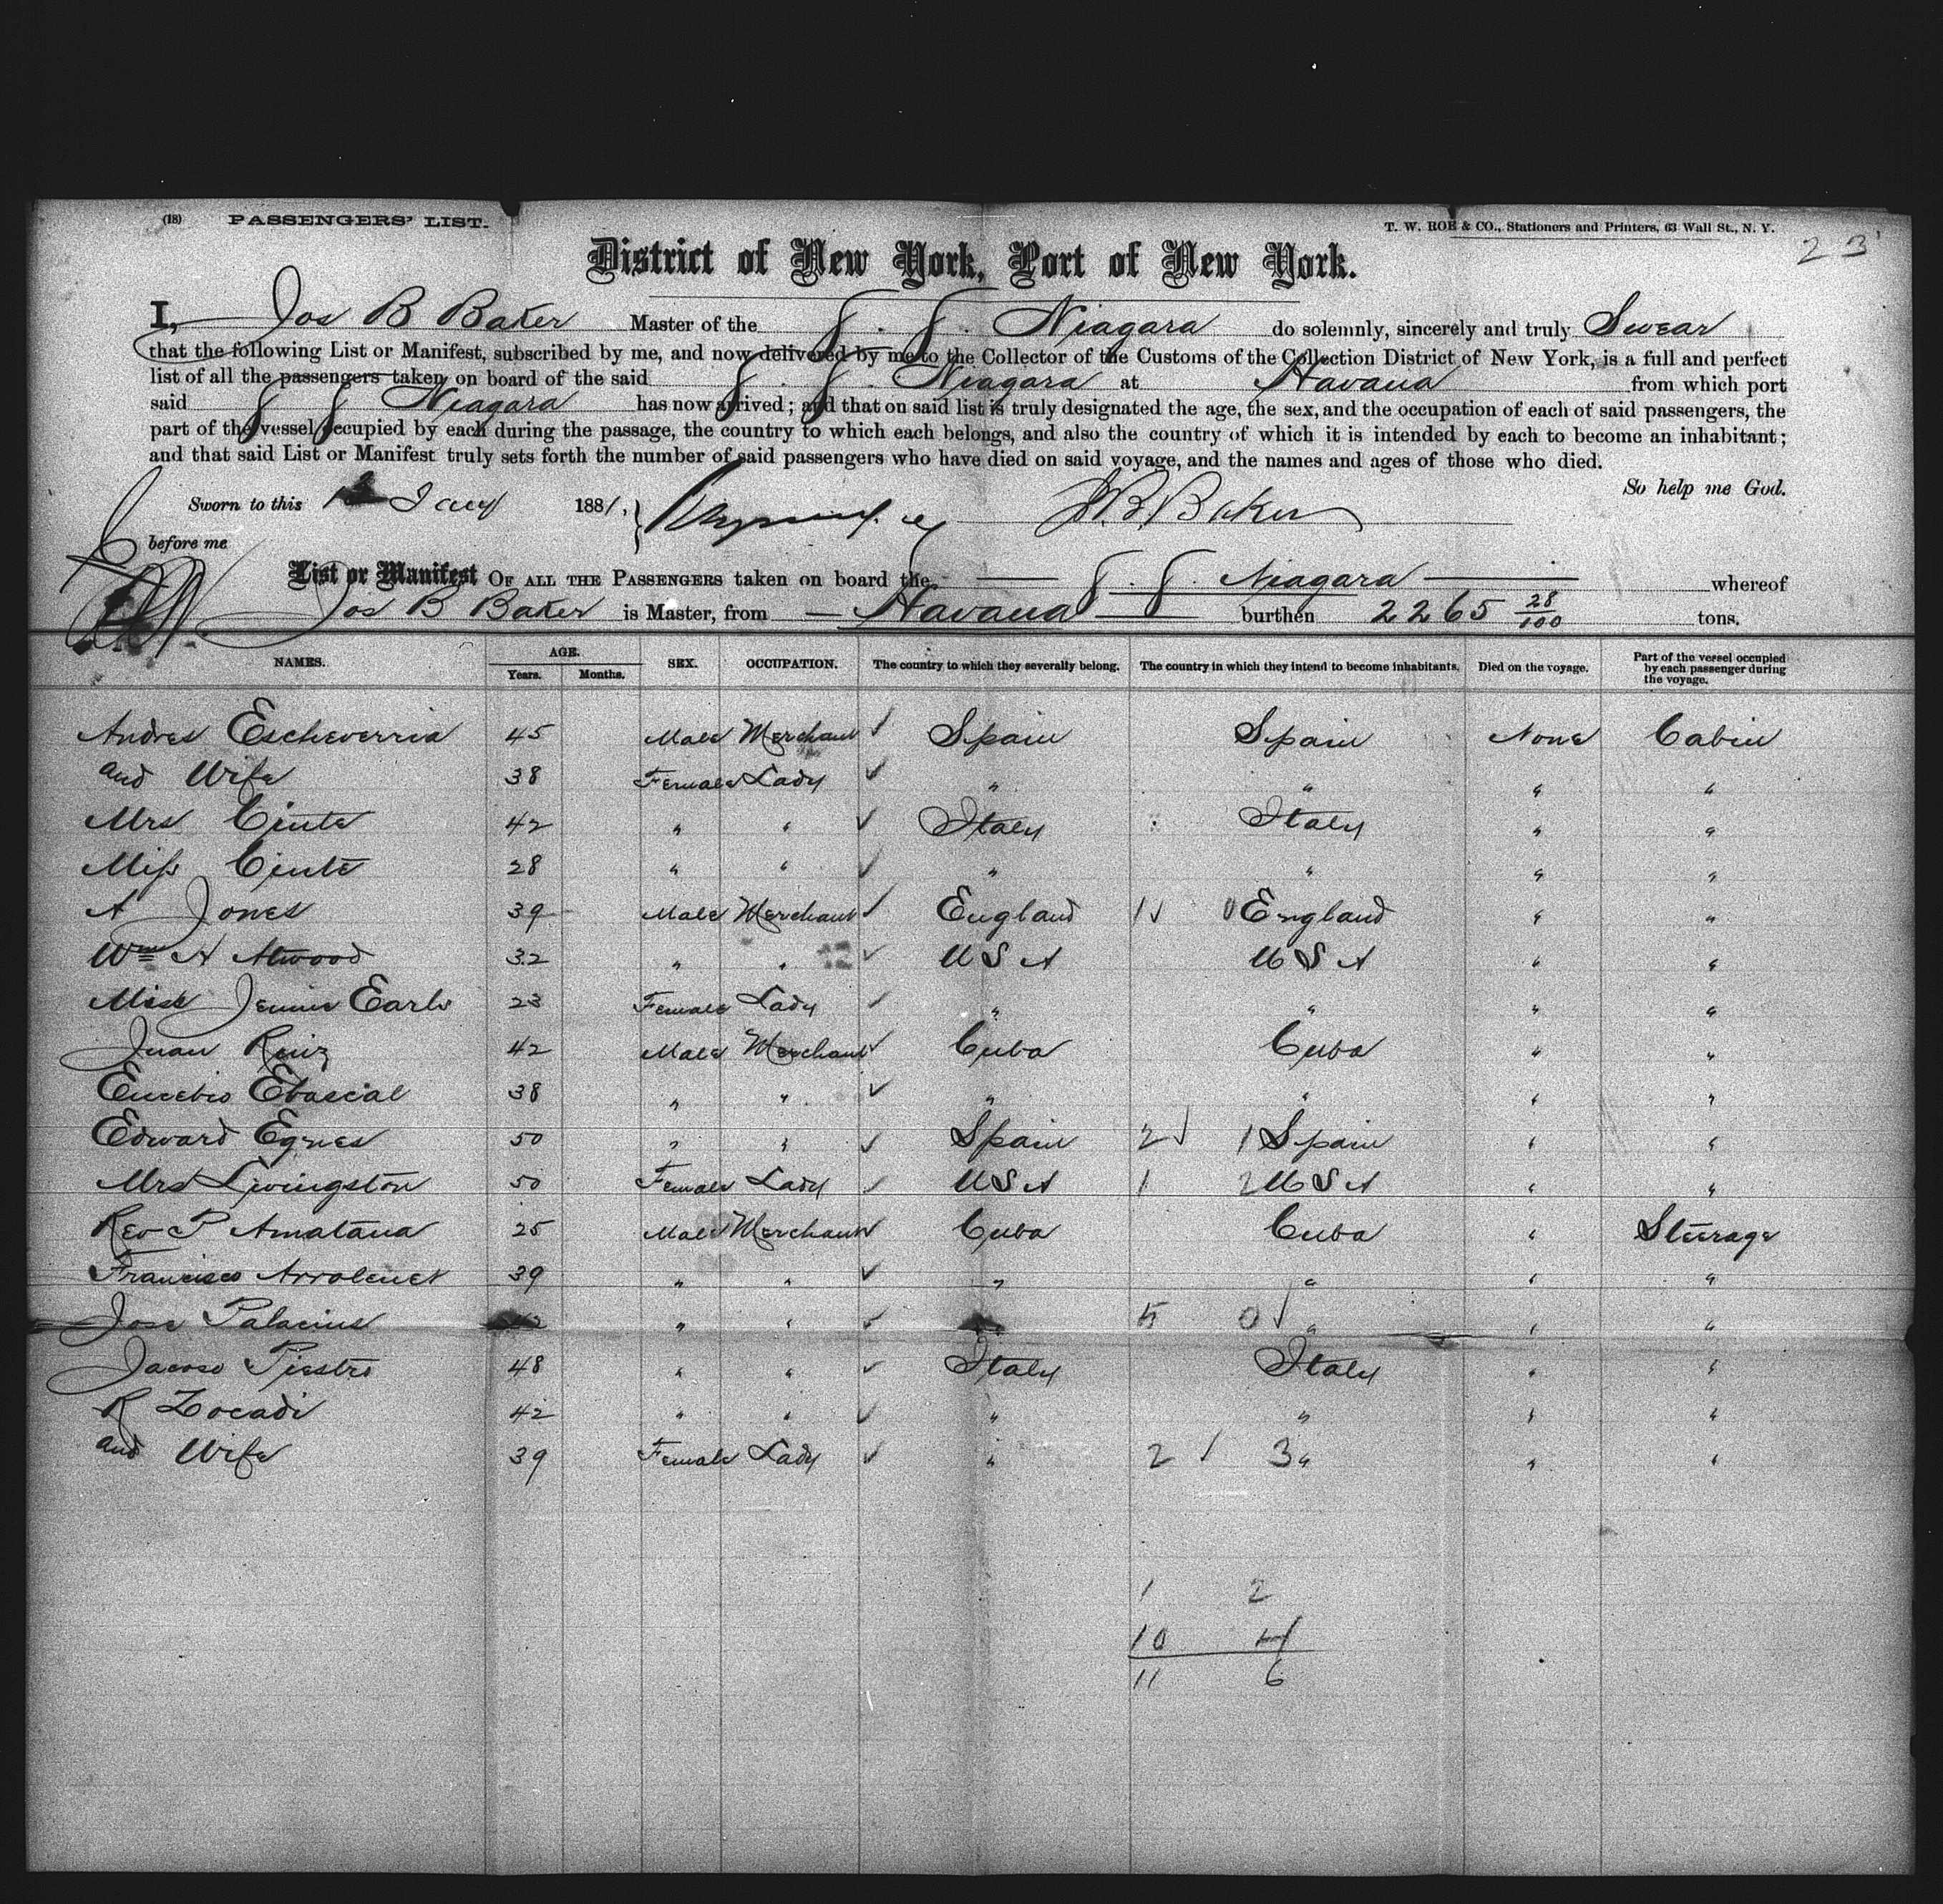 (18) PASSENGERS' LIST. T. W. ROE & CO., Stationers and Printers, 63 Wall St., N. Y. 23
District of New York, Port of New York.
I, Jos B Baker Master of the S. S. Niagara do solemnly, sincerely and truly Swear
that the following List or Manifest, subscribed by me, and now delivered by me to the Collector of the Customs of the Collection District of New York, is a full and perfect
list of all the passengers taken on board of the said S. S. Niagara at Havana from which port
said S S Niagara has now arrived; and that on said list is truly designated the age, the sex, and the occupation of each of said passengers, the
part of the vessel occupied by each during the passage, the country to which each belongs, and also the country of which it is intended by each to become an inhabitant;
and that said List or Manifest truly sets forth the number of said passengers who have died on said voyage, and the names and ages of those who died.
So help me God.
Sworn to this Jany 1881. J. B. Baker
before me
List or Manifest OF ALL THE PASSENGERS taken on board the S. S. Niagara whereof
Jos B Baker is Master, from Havana burthen 2265 28/100 tons.
NAMES. AGE. Years. Months. SEX. OCCUPATION. The country to which they severally belong. The country in which they intend to become inhabitants. Died on the voyage. Part of the vessel occupied by each passenger during the voyage.
Andres Escheverria 45 Male Merchant ✓ Spain Spain None Cabin
and Wife 38 Female Lady ✓ " " " "
Mrs Cinta 42 " " ✓ Italy Italy " "
Miss Cinta 28 " " ✓ " " " "
A Jones 39 Male Merchant ✓ England 1✓ 0 England " "
Wm A Atwood 32 " " ✓ U S A U S A " "
Miss Jennie Earls 23 Female Lady ✓ " " " "
Juan Ruiz 42 Male Merchant ✓ Cuba Cuba " "
Eusebio Ebascal 38 " " ✓ " " " "
Edward Egnes 50 " " ✓ Spain 2✓ 1 Spain " "
Mrs Livingston 50 Female Lady ✓ U S A 1 2 U S A " "
Rev P Amatana 25 Male Merchant ✓ Cuba Cuba " Steerage
Francisco 39 " " ✓ " " " "
Jose Palacius " " ✓ 5 0✓ " " "
Jacoso Piestro 48 " " ✓ Italy Italy " "
R Zocadi 42 " " ✓ " " " "
and Wife 39 Female Lady ✓ " 2 ✓ 3 " " "
1 2
10 4
11 6